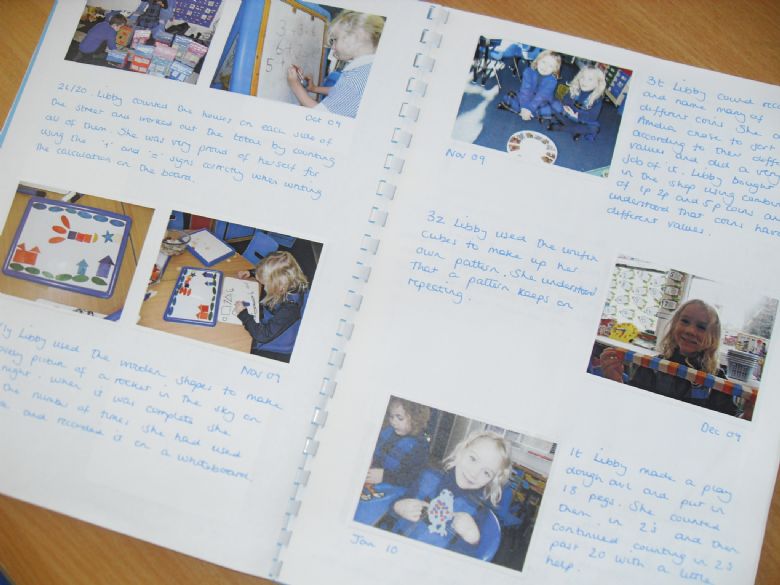 3+3=6
6+
5+
Oct 09
2i/2o. Libby counted the houses on each side of
the street and worked out the total by counting
all of them. She was very proud of herself for
using the '+' and '=' signs correctly when writing
the calculation on the board.
Nov 09
Libby used the wooden shapes to make
picture of a rocket in the sky on
night. When it was complete she
the number of times she had used
and recorded it on a whiteboard.
Nov 09
Libby could
and name many of
different coins. She
Amelia chose to sort
according to their
values and did a very
job of it. Libby bought
in the shop using
of 1p 2p and 5p coins and
understood that coins have
different values.
3z Libby used the unifix
cubes to make up her
own pattern. She understood
that a pattern keeps on
repeating.
Dec 09
Jan 10
Libby made a play
dough owl and put in
18 pegs. She counted
them in 2's and then
continued counting in 2's
past 20 with a little
help.